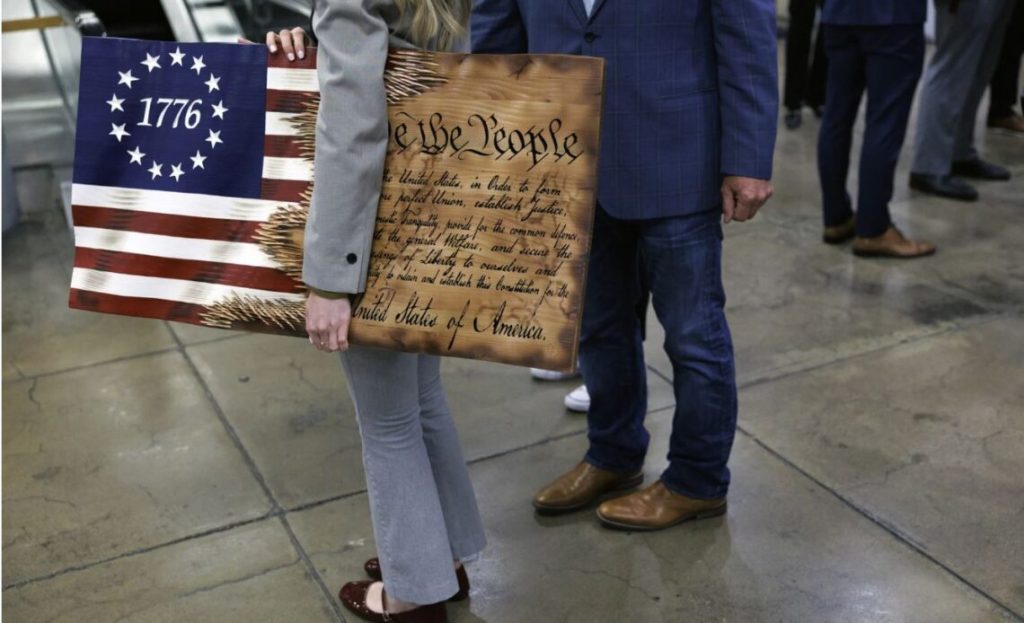 1776
the People
United States, in Order to form
perfect Union, establish Justice,
tranquility, provide for the common defence,
the general Welfare, and secure the
of Liberty to ourselves and
to ordain and establish this Constitution for the
United States of America.